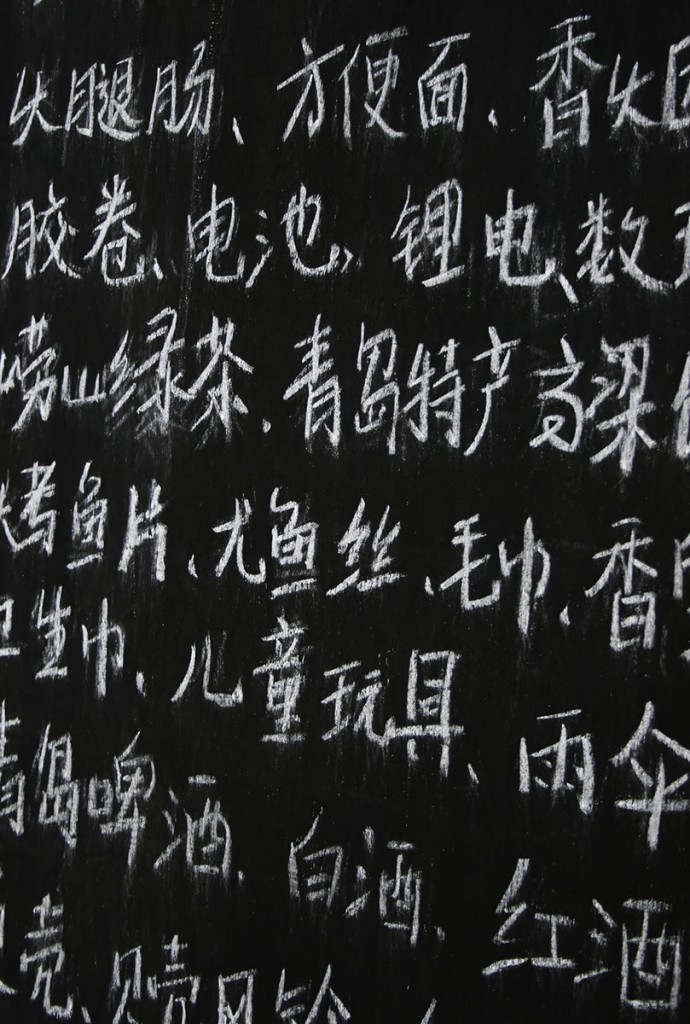 火腿肠、方便面、香火
胶卷、电池、锂电、数
崂山绿茶、青岛特产高梁
烤鱼片、尤鱼丝、毛巾、香
卫生巾、儿童玩具、雨伞
青岛啤酒、白酒、红酒
壳、贝壳风铃、